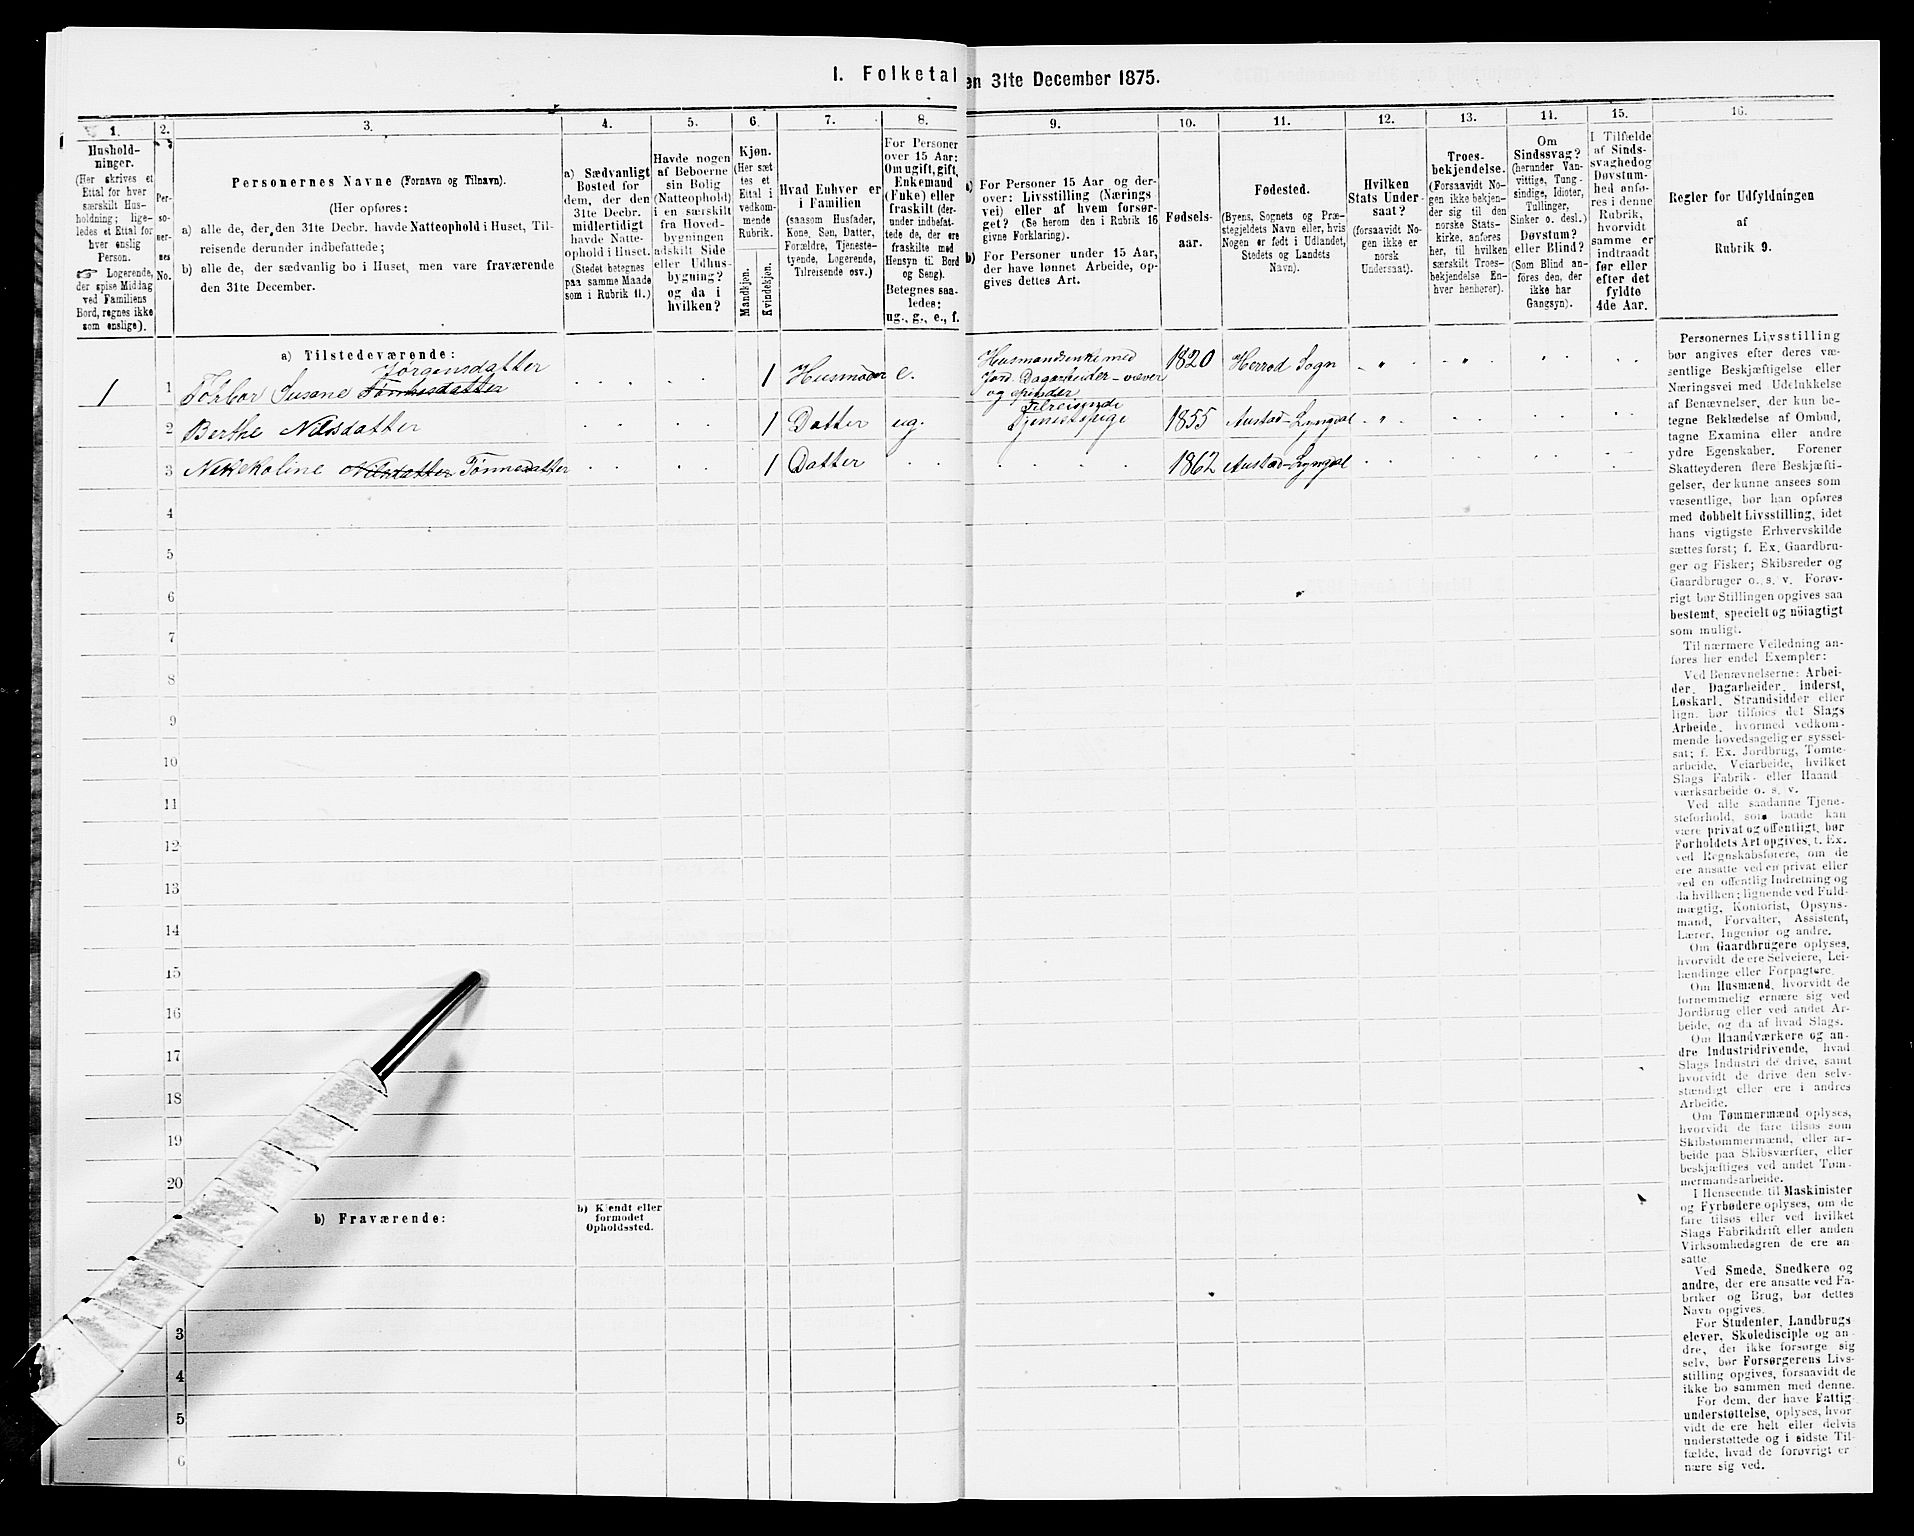 I. Folketal
en 31te December 1875.
1.
2.
3.
4.
5.
6.
7.
8.
9.
10.
11.
12.
13.
14.
15.
16.
Hushold-
ninger.
(Her skrives et
Ettal for hver
særskilt Hus-
holdning; lige-
ledes et Ettal for
hver enslig
Person.
☞ Logerende,
der spise Middag
ved Familiens
Bord, regnes ikke
som enslige).
Per-
so-
ner-
nes
No.
Personernes Navne (Fornavn og Tilnavn).
(Her opføres:
a) alle de, der den 31te Decbr. havde Natteophold i Huset, Til-
reisende derunder indbefattede;
b) alle de, der sædvanlig bo i Huset, men vare fraværende
den 31te December.
a) Sædvanligt
Bosted for
dem, der den
31te Decbr.
midlertidigt
havde Natte-
ophold i Huset.
(Stedet betegnes
paa samme Maade
som i Rubrik 11.)
Havde nogen
af Beboerne
sin Bolig
(Natteophold)
i en særskilt
fra Hoved-
bygningen
adskilt Side
eller Udhus-
bygning?
og da i
hvilken?
Kjøn.
(Her sæt
tes et
Ettal i
vedkom-
mende
Rubrik.
Mandkjøn.
Kvindekjøn.
Hvad Enhver er
i Familien
(saasom Husfader,
Kone, Søn, Datter,
Forældre, Tjeneste-
tyende, Logerende,
Tilreisende osv.)
For Personer
over 15 Aar:
Om ugift, gift,
Enkemand
(Enke) eller
fraskilt (der-
under indbefat-
tede de, der ere
fraskilte med
Hensyn til Bord
og Seng).
Betegnes saa-
ledes:
ug., g., e., f.
a) For Personer 15 Aar og der-
over: Livsstilling (Nærings-
vei) eller af hvem forsør-
get? (Se herom den i Rubrik 16
givne Forklaring).
b) For Personer under 15 Aar,
der have lønnet Arbeide, op-
gives dettes Art.
Fødsels-
aar.
Fødested.
(Byens, Sognets og Præ-
stegjeldets Navn eller, hvis
Nogen er født i Udlandet,
Stedets og Landets
Navn).
Hvilken
Stats Under-
saat?
(forsaavidt No-
gen ikke er
norsk
Undersaat).
Troes-
bekjendelse.
(Forsaavidt No-
gen ikke bekjen-
der sig til den
norske Stats-
kirke, anføres
her, til hvilken
særskilt Troes-
bekjendelse En-
hver henhører).
Om
Sindssvag?
(herunder Van-
vittige, Tung-
sindige, Idioter,
Tullinger,
Sinker o. desl.)
Døvstum?
eller Blind?
(Som Blind an-
føres den, der
ikke har
Gangsyn).
I Tilfælde
af Sinds-
svaghed og
Døvstum-
hed anfø-
res i denne
Rubrik,
hvorvidt
samme er
indtraadt
før eller
efter det
fyldte
4de Aar.
Regler for Udfyldningen
af
Rubrik 9.
a) Tilstedeværende:
Jørgensdatter
1 1 Torbor Susane Tønnesdatter 1 Husmoder e. Husmandsenke med Jord. Dagarbeider - væver og spinder 1820 Herrod Sogn
2 Berthe Nilsdatter 1 Datter ug. Tilreisende Tjenestepige 1855 Austad-Lyngdal
3 Nekekoline Nilsdatter Tønnesdatter 1 Datter 1862 Austad-Lyngdal
4
5
6
7
8
9
10
11
12
13
14
15
16
17
18
19
20
b) Fraværende:
b) Kjendt eller
formodet
Opholdssted.
3
4
5
6
Personernes Livsstilling
bør angives efter deres væ-
sentlige Beskjæftigelse eller
Næringsvei med Udelukkelse
af Benævnelser, der kun be-
tegne Beklædelse af Ombud,
tagne Examina eller andre
ydre Egenskaber. Forener
Skatteyderen flere Beskjæfti-
gelser, der kunne ansees som
væsentlige, bør han opføres
med dobbelt Livsstilling, idet
hans vigtigste Erhvervskilde
sættes først; f. Ex. Gaardbru-
ger og Fisker; Skibsreder og
Gaardbruger o. s. v. Forøv-
rigt bør Stillingen opgives saa
bestemt, specielt og nöiagtigt
som muligt.
Til nærmere Veiledning an-
føres her endel Exempler:
Ved Benævnelserne: Arbei-
der, Dagarbeider, Inderst,
Løskarl, Strandsidder eller
lign. bør tilføies det Slags
Arbeide, hvormed vedkom-
mende hovedsagelig er syssel-
sat; f. Ex. Jordbrug, Tomte-
arbeide, Veiarbeide, hvilket
Slags Fabrik- eller Haand
værksarbeide o. s. v.
Ved alle saadanne Tjene-
steforhold, som baade kan
være privat og offentligt, bør
Forholdets Art opgives, t. Ex.
ved Regnskabsførere, om de
ere ansatte ved en privat eller
ved en offentlig Indretning og
da hvilken; lignende ved Fuld-
mægtig, Kontorist, Opsyns-
mand, Forvalter, Assistent,
Lærer, Ingeniør og andre.
Om Gaardbrugere oplyses,
hvorvidt de ere Selveiere, Lei-
lændinge eller Forpagtere.
Om Husmænd, hvorvidt de
fornemmelig ernære sig ved
Jordbrug eller ved andet Ar-
beide, og da af hvad Slags.
Om Haandværkere og an-
dre Industridrivende, hvad
Slags Industri de drive, samt
hvorvidt de drive den selv-
stændigt eller ere i andres
Arbeide.
Om Tømmermænd oplyses,
hvorvidt de fare tilsøs som
Skibstømmermænd, eller ar-
beide paa Skibsværfter, eller
beskjæftiges ved andet Tøm-
mermandsarbeide.
I Henseende til Maskinister
og Fyrbødere oplyses, om de
fare tilsøs eller ved hvilket
Slags Fabrikdrift eller anden
Virksomhedsgren de ere an-
satte.
Ved Smede, Snedkere og
andre, der ere ansatte ved Fa-
briker og Brug, bør dettes
Navn opgives.
For Studenter, Landbrugs
elever, Skoledisciple og an-
dre, der ikke forsørge sig
selv, bør Forsørgerens Livs-
stilling opgives, forsaavidt de
ikke bo sammen med denne.
For dem, der have Fattig
understøttelse, oplyses, hvor
vidt de ere helt eller delvis
understøttede og i sidste Til-
fælde, hvad de forøvrigt er
nære sig ved.